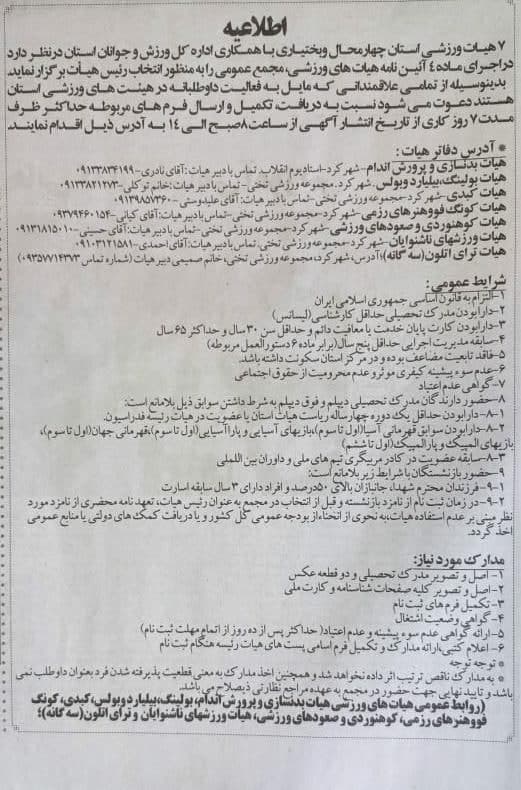 اطلاعیه
۷ هیات ورزشی استان چهارمحال وبختیاری با همکاری اداره کل ورزش و جوانان استان در نظر دارد
در اجرای ماده ٤ آئین نامه هیات های ورزشی، مجمع عمومی را به منظور انتخاب رئیس هیأت برگزار نماید.
بدینوسیله از تمامی علاقمندانی که مایل به فعالیت داوطلبانه در هیئت های ورزشی استان
هستند دعوت می شود نسبت به دریافت، تکمیل و ارسال فرم های مربوطه حداکثر ظرف
مدت ۷ روز کاری از تاریخ انتشار آگهی از ساعت ۸ صبح الی ۱۴ به آدرس ذیل اقدام نمایند.
* آدرس دفاتر هیات :
هیات بدنسازی و پرورش اندام- شهر کرد-استادیوم انقلاب. تماس با دبیر هیات : آقای نادری-۰۹۱۳۳۸۳۴۱۹۹
هیات بولینگ،بیلیارد وبولس. شهر کرد. مجموعه ورزشی تختی- تماس با دبیر هیات : خانم توکلی-۰۹۱۳۳۸۲۱۲۷۳
هیات کبدی-شهر کرد-مجموعه ورزشی تختی- تماس با دبیر هیات: آقای علیدوستی-۰۹۱۳۹۸۵۷۳۶۰
هیات کونگ فووهنرهای رزمی- شهر کرد-مجموعه ورزشی تختی-تماس با دبیر هیات: آقای کیانی-۰۹۳۷۹۴۶۰۱۵۴
هیات کوهنوردی و صعودهای ورزشی-شهر کرد-مجموعه ورزشی تختی- تماس با دبیر هیات: آقای حسینی-۰۹۱۳۱۸۱۵۰۱۰
هیات ورزشهای ناشنوایان-شهر کرد-مجموعه ورزشی تختی. تماس با دبیر هیات: آقای احمدی-۰۹۱۰۳۱۲۱۵۸۱
هیات ترای اتلون(سه گانه)؛آدرس، شهر کرد، مجموعه ورزشی تختی، خانم صمیمی دبیر هیات (شماره تماس ۰۹۳۵۷۷۱۴۳۷۳)
شرایط عمومی :
۱-التزام به قانون اساسی جمهوری اسلامی ایران
۲-دارا بودن مدرک تحصیلی حداقل کارشناسی (لیسانس)
۳-دارا بودن کارت پایان خدمت یا معافیت دائم و حداقل سن ۳۰ سال و حداکثر ۶۵ سال
۴-سابقه مدیریت اجرایی حداقل پنج سال(برابر ماده ۶ دستورالعمل مربوطه)
۵-فاقد تابعیت مضاعف بوده و در مرکز استان سکونت داشته باشد.
۶-عدم سوء پیشینه کیفری موثر و عدم محرومیت از حقوق اجتماعی
۷-گواهی عدم اعتیاد
۸-حضور دارندگان مدرک تحصیلی دیپلم و فوق دیپلم به شرط داشتن سوابق ذیل بلامانع است:
۸-۱-دارا بودن حداقل یک دوره چهارساله ریاست هیات استان یا عضویت در هیات رئیسه فدراسیون.
۸-۲-دارا بودن سوابق قهرمانی آسیا(اول تا سوم)،بازیهای آسیایی و پاراآسیایی(اول تا سوم)،قهرمانی جهان(اول تا سوم)،
بازیهای المپیک و پارالمپیک(اول تا ششم)
۸-۳-سابقه عضویت در کادر مربیگری تیم های ملی و داوران بین المللی
۹-حضور بازنشستگان با شرایط زیر بلامانع است:
۹-۱- فرزندان محترم شهدا، جانبازان بالای ۵۰ درصد و افراد دارای ۳ سال سابقه اسارت
۹-۲- در زمان ثبت نام از نامزد بازنشسته و قبل از انتخاب در مجمع به عنوان رئیس هیات، تعهد نامه محضری از نامزد مورد
نظر مبنی بر عدم استفاده هیات،به نحوی از انحاء،از بودجه عمومی کل کشور و یا دریافت کمک های دولتی یا منابع عمومی
اخذ گردد.
مدارک مورد نیاز:
۱- اصل و تصویر مدرک تحصیلی و دو قطعه عکس
۲- اصل و تصویر کلیه صفحات شناسنامه و کارت ملی
۳- تکمیل فرم های ثبت نام
۴- گواهی وضعیت اشتغال
۵- ارائه گواهی عدم سوء پیشینه و عدم اعتیاد( حداکثر پس از ده روز از اتمام مهلت ثبت نام)
۶- اعلام کتبی،ارائه مدارک و تکمیل فرم اسامی پست های هیات رئیسه هنگام ثبت نام
* توجه توجه
* به مدارک ناقص ترتیب اثر داده نخواهد شد و همچنین اخذ مدارک به معنی قطعیت پذیرفته شدن فرد بعنوان داوطلب نمی
باشد و تایید نهایی جهت حضور در مجمع به عهده مراجع نظارتی ذیصلاح می باشد.
(روابط عمومی هیات های ورزشی هیات بدنسازی و پرورش اندام، بولینگ،بیلیارد وبولس،کبدی، کونگ
فووهنرهای رزمی، کوهنوردی و صعودهای ورزشی، هیات ورزشهای ناشنوایان و ترای اتلون(سه گانه)؛